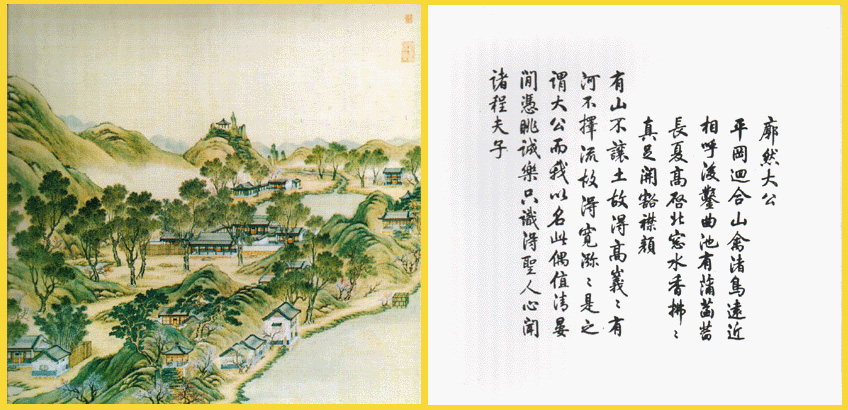 廓然大公
平岡迴合山禽渚鳥遠近
相呼後鑿曲池有蒲菡萏
長夏高啓北窓水香拂〻
真足開豁襟顏
有山不讓土故得高嶬〻有
河不擇流故得寬瀰〻是之
謂大公而我以名此偶值清晏
閒憑眺誠樂只識得聖人心聞
諸程夫子